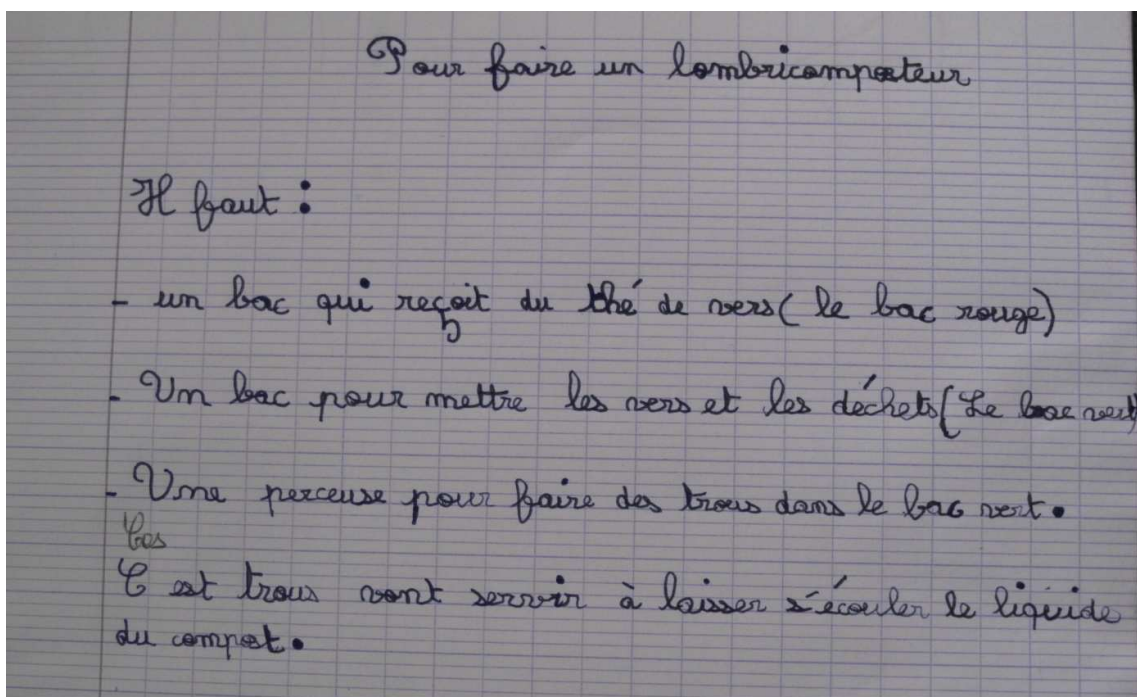 Pour faire un lombricomposteur
Il faut :
- un bac qui reçoit du thé de vers ( le bac rouge)
- Un bac pour mettre les vers et les déchets ( Le bac vert)
- Une perceuse pour faire des trous dans le bac vert.
Ces
C est trous vont servir à laisser s'écouler le liquide
du compost.